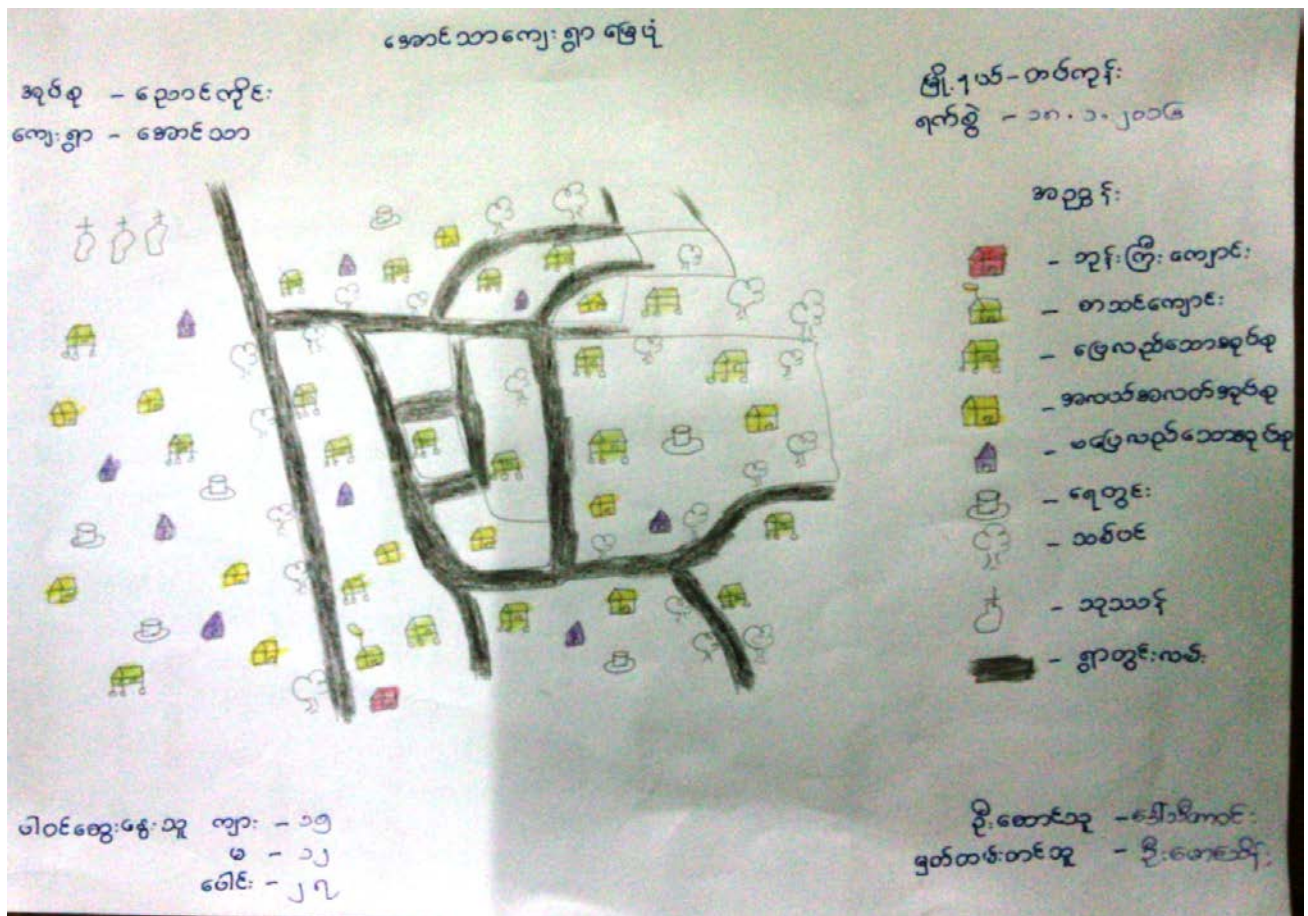 အောင်သာကျေးရွာ မြေပုံ
အုပ်စု - ညောင်ကိုင်း
ကျေးရွာ - အောင်သာ
မြို့နယ် - တပ်ကုန်း
ရက်စွဲ - ၁၈.၁.၂၀၁၆
အညွှန်း
- ဘုန်းကြီးကျောင်း
- စာသင်ကျောင်း
- ပြေလည်သောအုပ်စု
- အလယ်အလတ်အုပ်စု
- မပြေလည်သောအုပ်စု
- ရေတွင်း
- သစ်ပင်
- သုသာန်
- ရွာတွင်းလမ်း
ပါဝင်ဆွေးနွေးသူ ကျား - ၁၅
မ - ၁၂
ပေါင်း - ၂၇
ဦးဆောင်သူ -
မှတ်တမ်းတင်သူ -